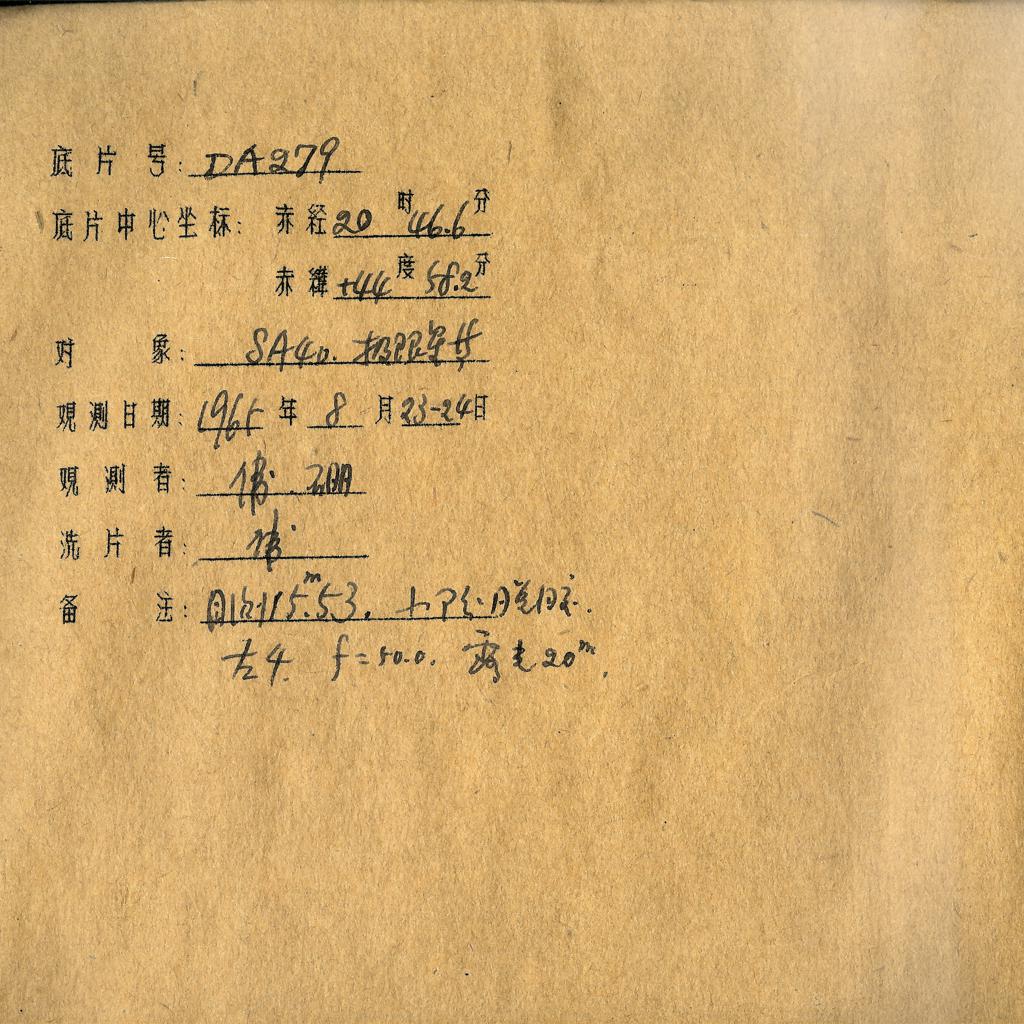 底片号: DA279
底片中心坐标: 赤经 20 时 46.6 分
赤纬 +44 度 58.2 分
对 象: SA40. 极限星等
观测日期: 1965 年 8 月 23-24 日
观测者:
洗片者:
备 注: 115.ᵐ53.
f=50.0. 露光 20ᵐ.